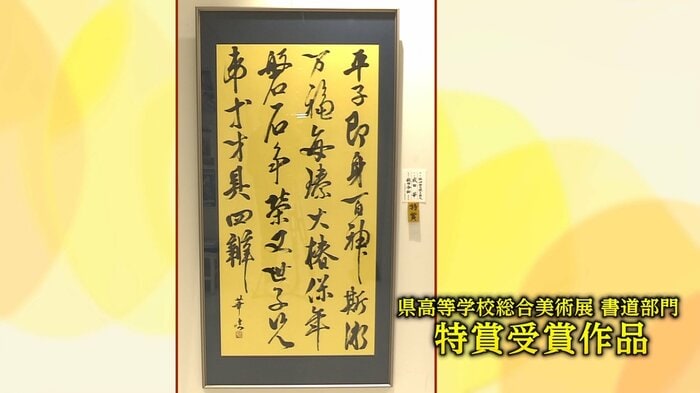 平子即身百神斯
万福毎臻大椿保年
磐石争榮又世子
才具四
華
特賞
県高等学校総合美術展 書道部門
特賞受賞作品